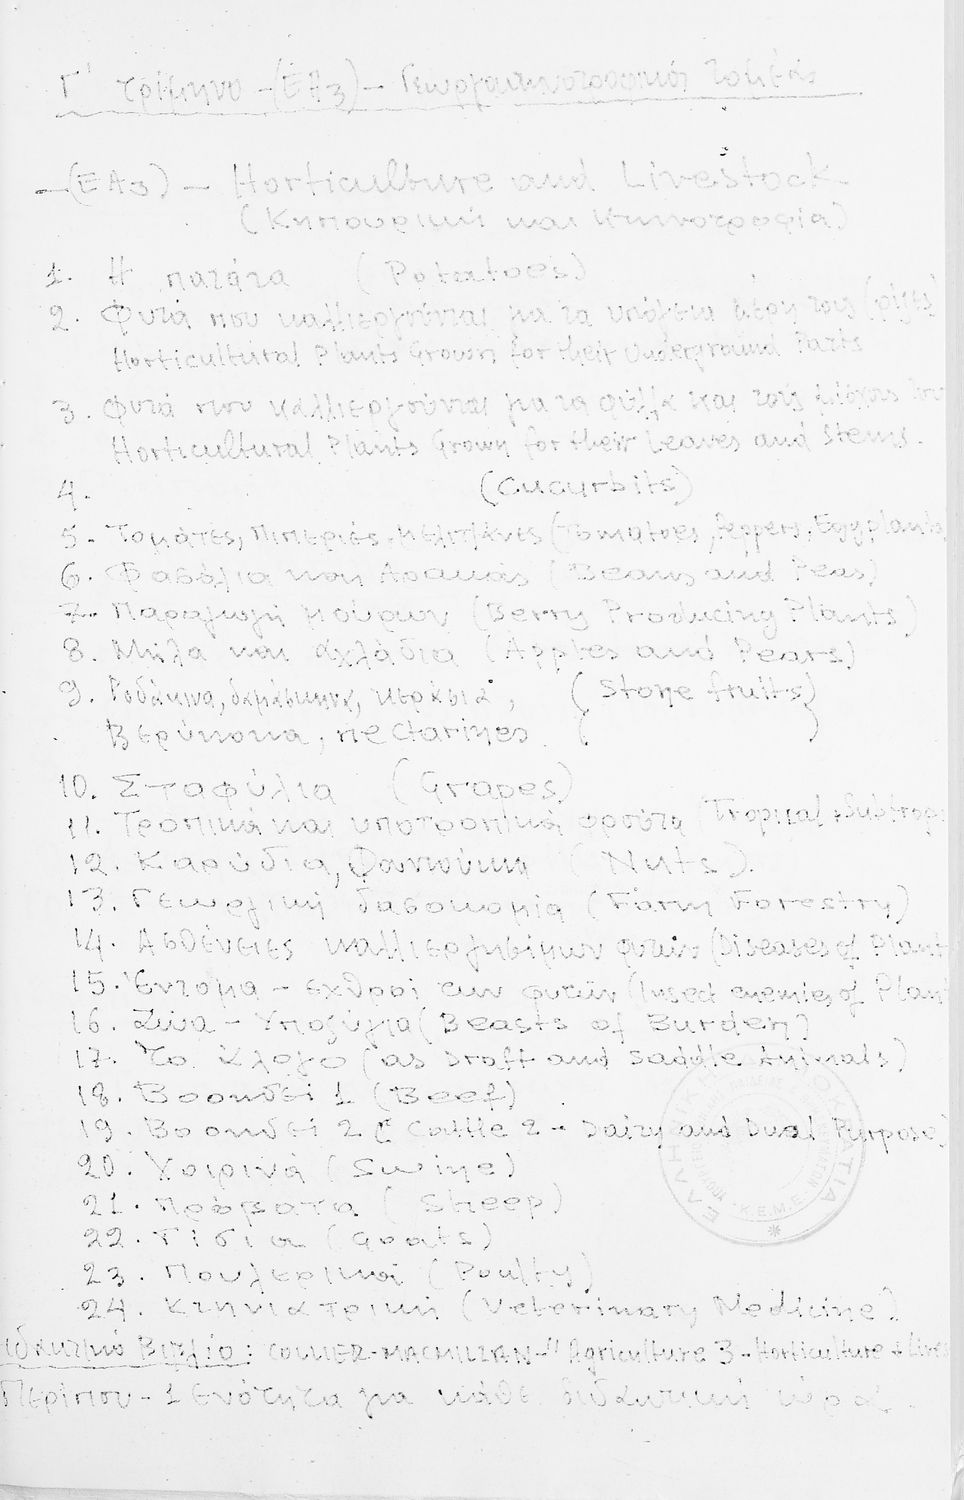 Γ' τρίμηνο - (ΕΑ3) - Γεωργοκτηνοτροφικός τομέας
- (ΕΑ3) - Horticulture and Livestock
(Κηπουρική και κτηνοτροφία)
1. Η πατάτα (Potatoes)
2. Φυτά που καλλιεργούνται για τα υπόγεια μέρη τους (ρίζες)
Horticultural Plants Grown for their Underground Parts
3. Φυτά που καλλιεργούνται για τα φύλλα και τους
Horticultural Plants Grown for their Leaves and Stems.
4. (Cucurbits)
5. Τομάτες, Πιπεριές, Μελιτζάνες (Tomatoes, Peppers, Eggplants
6. Φασόλια και Αρακάς (Beans and Peas)
7. Παραγωγή μούρων (Berry Producing Plants)
8. Μήλα και αχλάδια (Apples and Pears)
9. Ροδάκινα, δαμάσκηνα, κεράσια, (Stone fruits)
Βερύκοκα, nectarines ( )
10. Σταφύλια (Grapes)
11. Τροπικά και υποτροπικά φρούτα (Tropical + Subtropi
12. Καρύδια, Φουντούκια (Nuts).
13. Γεωργική δασοκομία (Farm Forestry)
14. Ασθένειες καλλιεργησίμων φυτών (Diseases of Plant
15. Έντομα - εχθροί των φυτών (Insect enemies of Plan
16. Ζώα - Υποζύγια (Beasts of Burden)
17. Το Άλογο (as Draft and Saddle Animals)
18. Βοοειδεί 1 (Beef)
19. Βοοειδεί 2 (Cattle 2 - Dairy and Dual Purpose)
20. Χοιρινά (Swine)
21. Πρόβατα (Sheep)
22. Γίδια (Goats)
23. Πουλερικά (Poulty)
24. Κτηνιατρική (Veterinary Medicine)
ιδακτικό Βιβλίο: COLLIER-MACMILLAN - "Agriculture 3 - Horticulture + Lives
Περίπου - 1 Ενότητα για κάθε διδακτική ώρα.
ΕΛΛΗΝΙΚΗ ΔΗΜΟΚΡΑΤΙΑ
Κ.Ε.Μ.Ε.